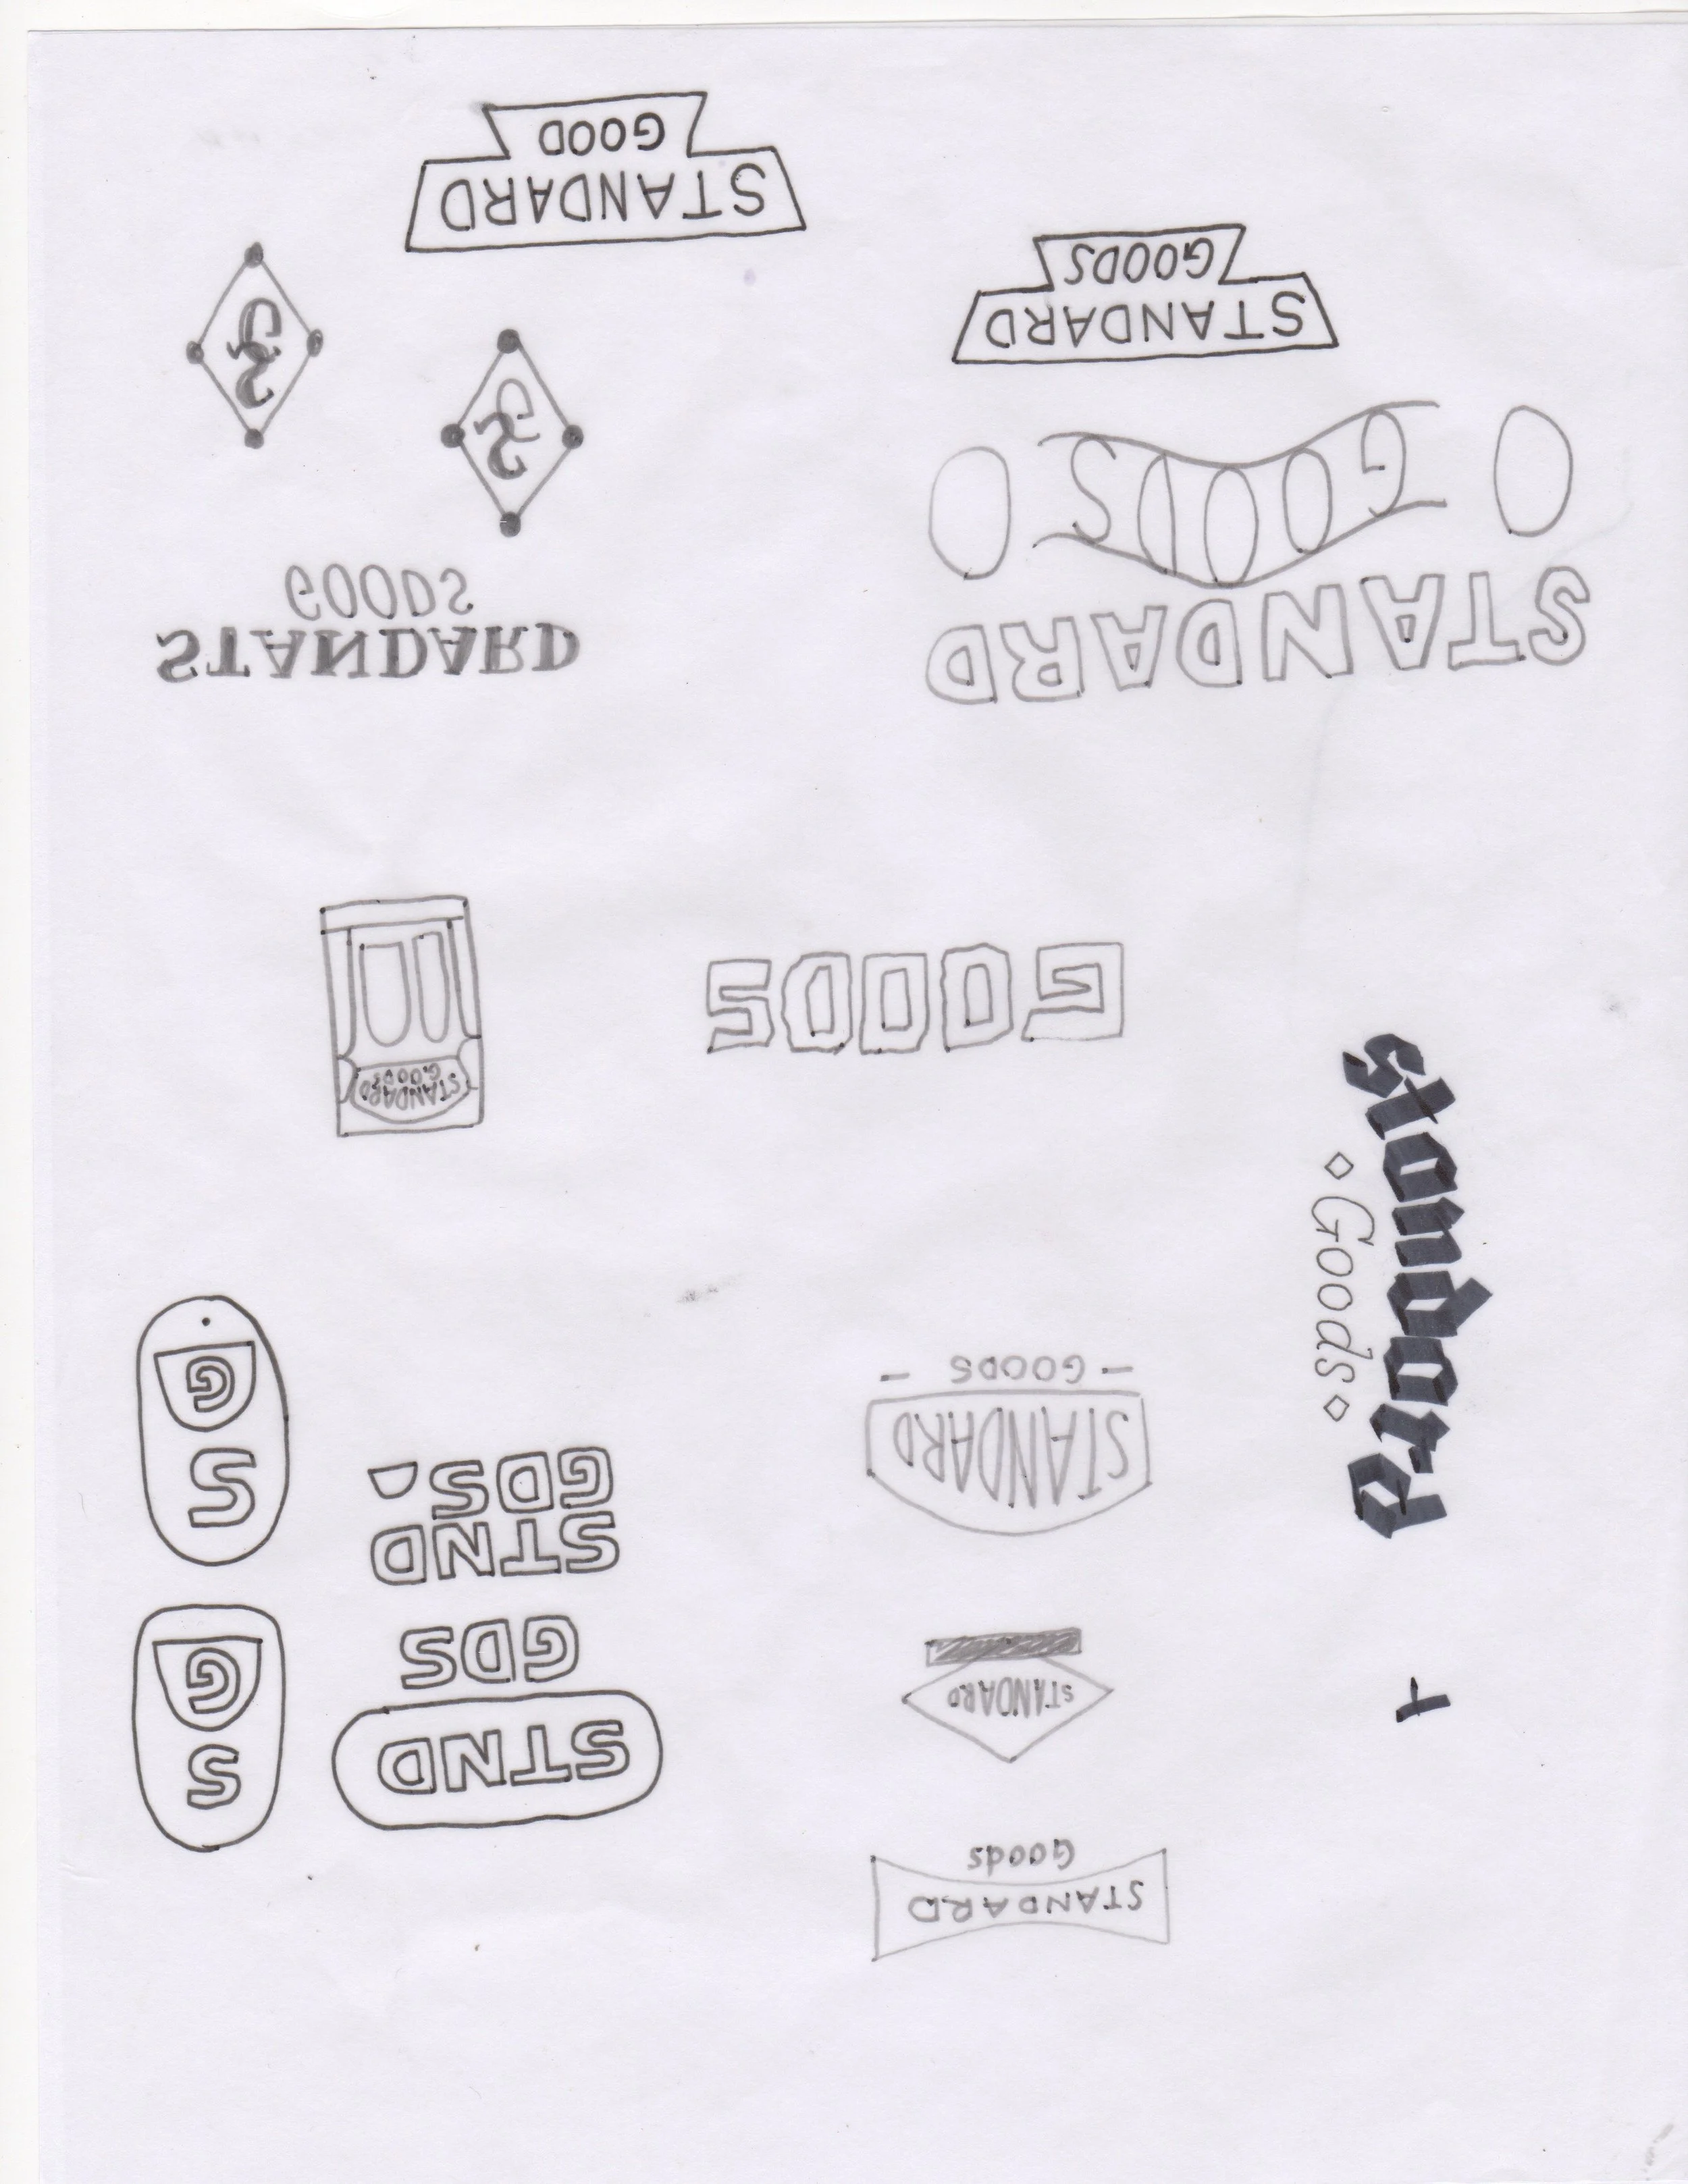 STANDARD
Goods
STND
GDS
S
G
STANDARD
STND
GDS.
S
G
STANDARD
- GOODS -
standard
Goods
GOODS
STANDARD
GOODS
STANDARD
GOODS
STANDARD
GOODS
SG
SG
STANDARD
GOODS
STANDARD
GOOD